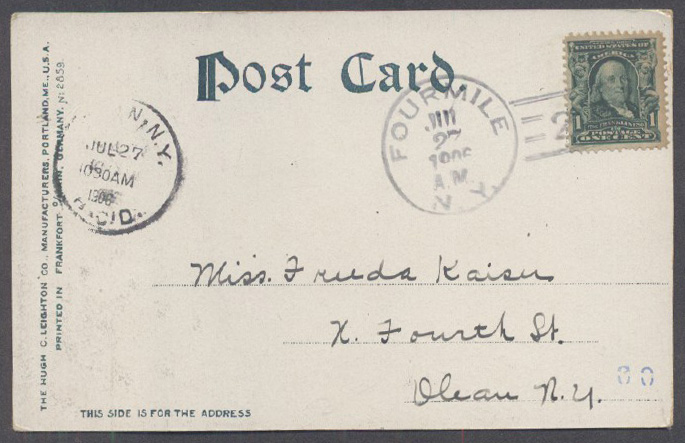 Post Card.
FOURMILE
JUL
27
1906
A.M.
N.Y.
2
UNITED STATES OF AMERICA
1 1
FRANKLIN
POSTAGE
ONE CENT
N.Y.
JUL 27
1030AM
1906
REC'D.
Miss. Freeda Kaiser
N. Fourth St.
Olean N.Y.
80
THIS SIDE IS FOR THE ADDRESS
THE HUGH C. LEIGHTON CO., MANUFACTURERS, PORTLAND, ME., U.S.A.
PRINTED IN FRANKFORT GERMANY. No 2859